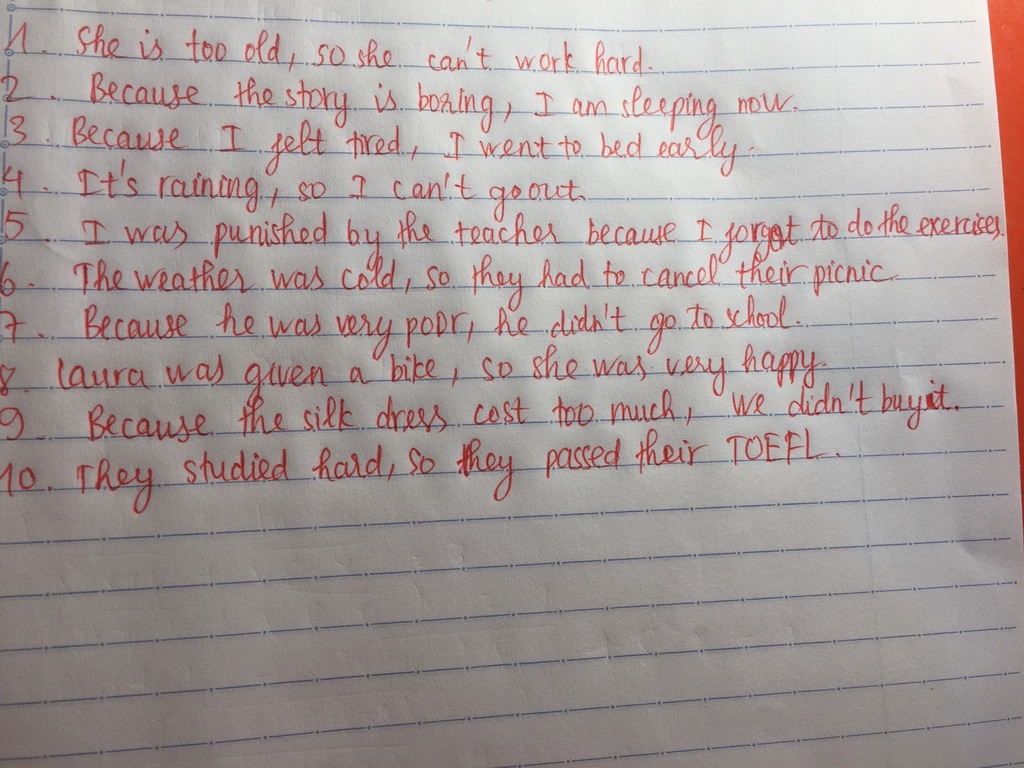 1. She is too old, so she can't work hard.
2. Because the story is boring, I am sleeping now.
3. Because I felt tired, I went to bed early.
4. It's raining, so I can't go out.
5. I was punished by the teacher because I forgot to do the exercises.
6. The weather was cold, so they had to cancel their picnic.
7. Because he was very poor, he didn't go to school.
8. Laura was given a bike, so she was very happy.
9. Because the silk dress cost too much, we didn't buy it.
10. They studied hard, so they passed their TOEFL.